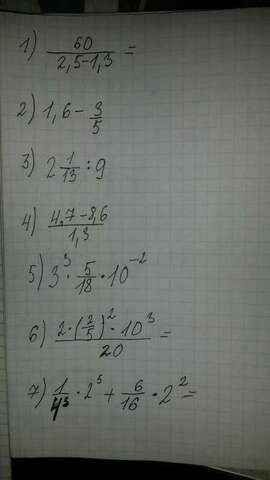 1) 60 / (2,5-1,3) =
2) 1,6 - 3/5
3) 2 1/13 : 9
4) (4,7-8,6) / 1,3
5) 3³ · 5/18 · 10⁻²
6) (2 · (2/5)² · 10³) / 20 =
7) 1/4³ · 2⁵ + 6/16 · 2² =